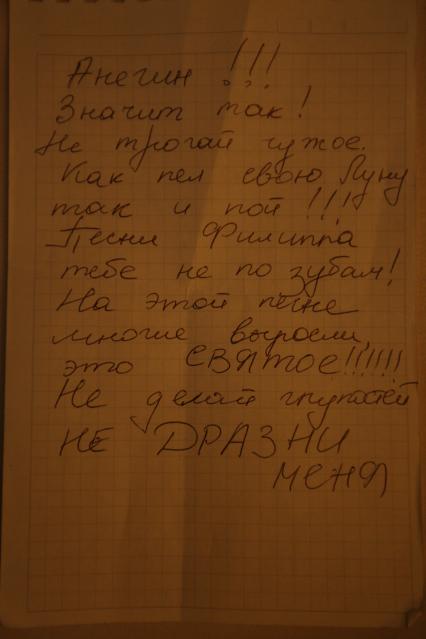 Анегин !!!
Значит так!
Не трогай чужое.
Как пел свою Луну
так и пой !!!
Песни Филиппа
тебе не по зубам!
На этой песне
многие выросли,
это СВЯТОЕ!!!!!!
Не делай глупостей
НЕ ДРАЗНИ
МЕНЯ